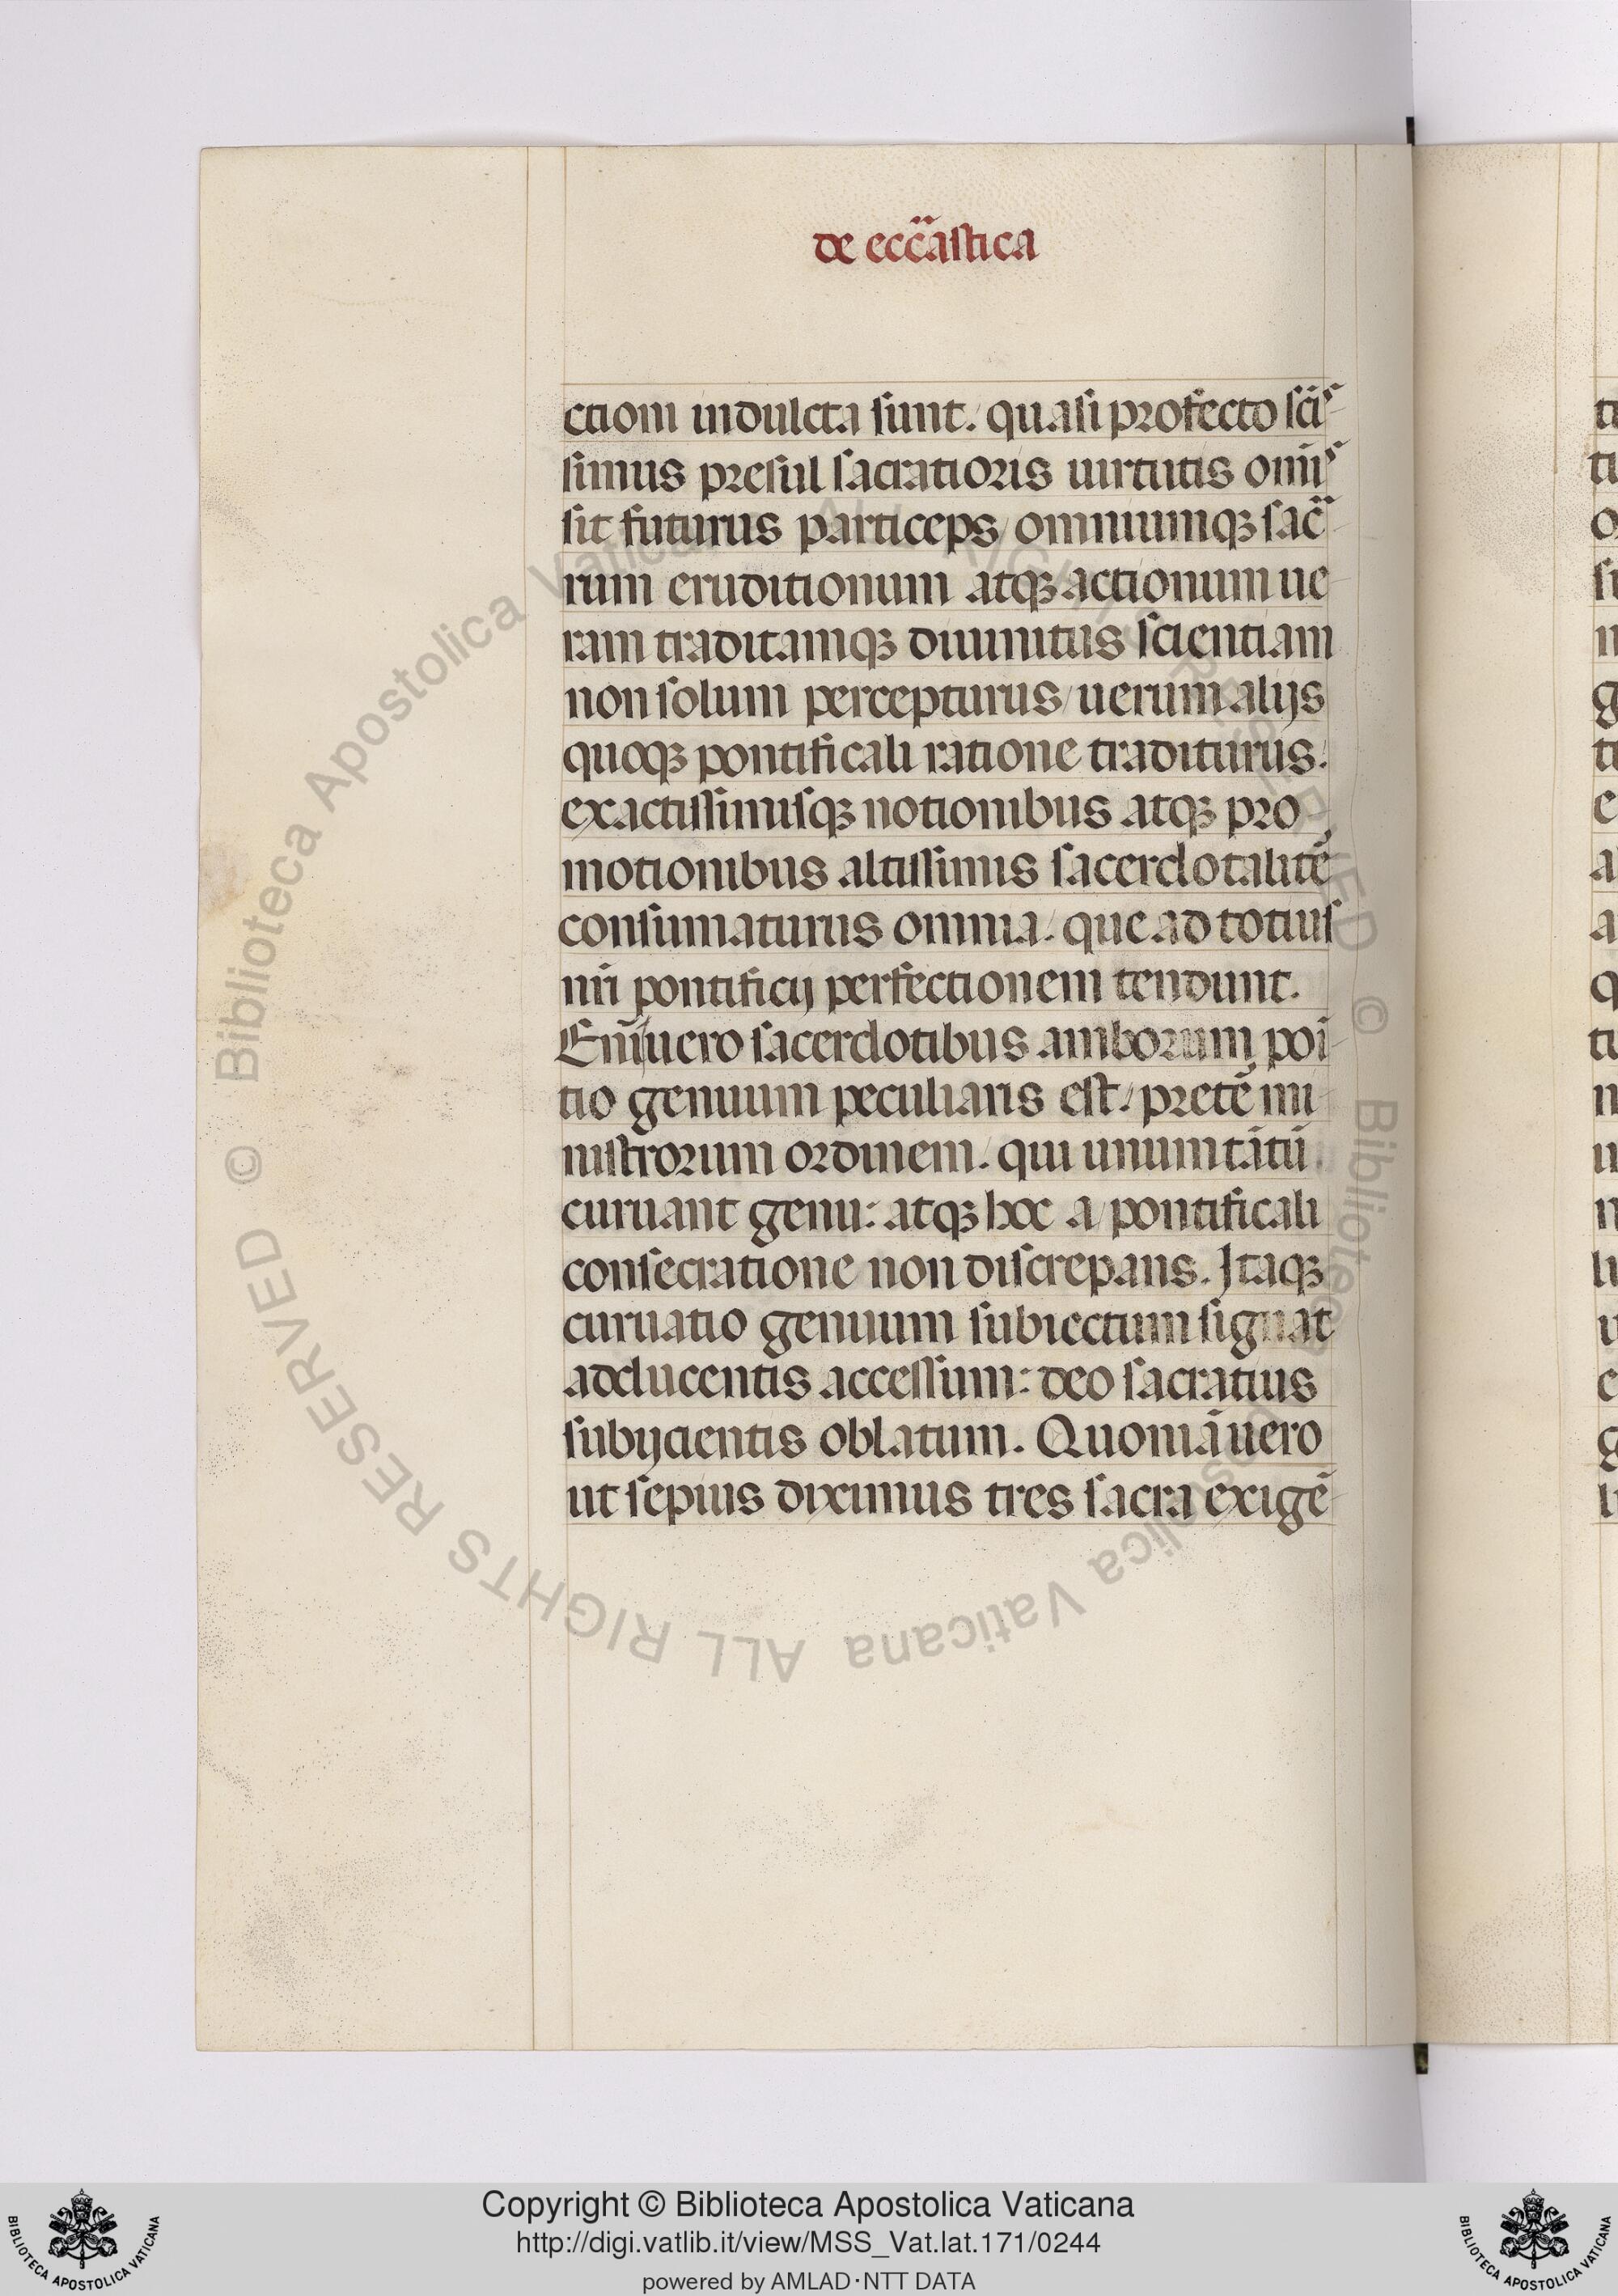 de ecc̄astica
ctioni indulcta sunt. quasi profecto sc̄is
simus presul sacratioris uirtutis omīs
sit futurus particeps/ omniumqꝫ sac̄
rum eruditionum atqꝫ actionum ue
ram traditamqꝫ diuinitus scientiam
non solum percepturus/ uerum alijs
quoqꝫ pontificali ratione traditurus.
exactissimisqꝫ notionibus atqꝫ pro
motionibus altissimis sacerdotalitē
consumaturus omnia. que ad totius
nr̄i pontificij perfectionem tendunt.
Enīuero sacerdotibus amborum poi
tio genuum peculiaris est. pretē mi
nistrorum ordinem. qui unum tātū
curuant genu: atqꝫ hoc a pontificali
consecratione non discrepans. Itaqꝫ
curuatio genuum subiectum signat
adducentis accessum: deo sacratius
subijcientis oblatum. Quoniā uero
ut sepius diximus tres sacra exigē
Copyright © Biblioteca Apostolica Vaticana
http://digi.vatlib.it/view/MSS_Vat.lat.171/0244
powered by AMLAD·NTT DATA
BIBLIOTECA APOSTOLICA VATICANA
BIBLIOTECA APOSTOLICA VATICANA
© Biblioteca Apostolica Vaticana ALL RIGHTS RESERVED
© Biblioteca Apostolica Vaticana ALL RIGHTS RESERVED